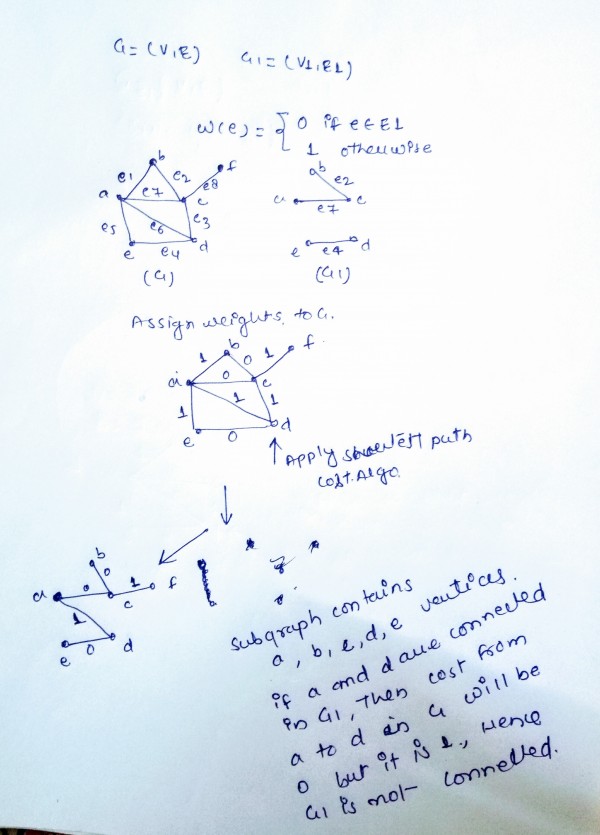 G = (V,E) G1 = (V1,E1)
w(e) = { 0 if e ∈ E1
1 otherwise
b
e1 e2 f
a e7 c e8
e5 e6 e3
e e4 d
(G)
b
e2
a e7 c
e e4 d
(G1)
Assign weights to G.
b f
1 0 1
a 0 c
1 1 1
e 0 d
Apply shortest path
cost Algo.
b
0
a 0 c 1 f
1
e 0 d
subgraph contains
a, b, c, d, e vertices.
if a and d are connected
in G1, then cost from
a to d in G will be
0 but it is 1, Hence
G1 is not connected.